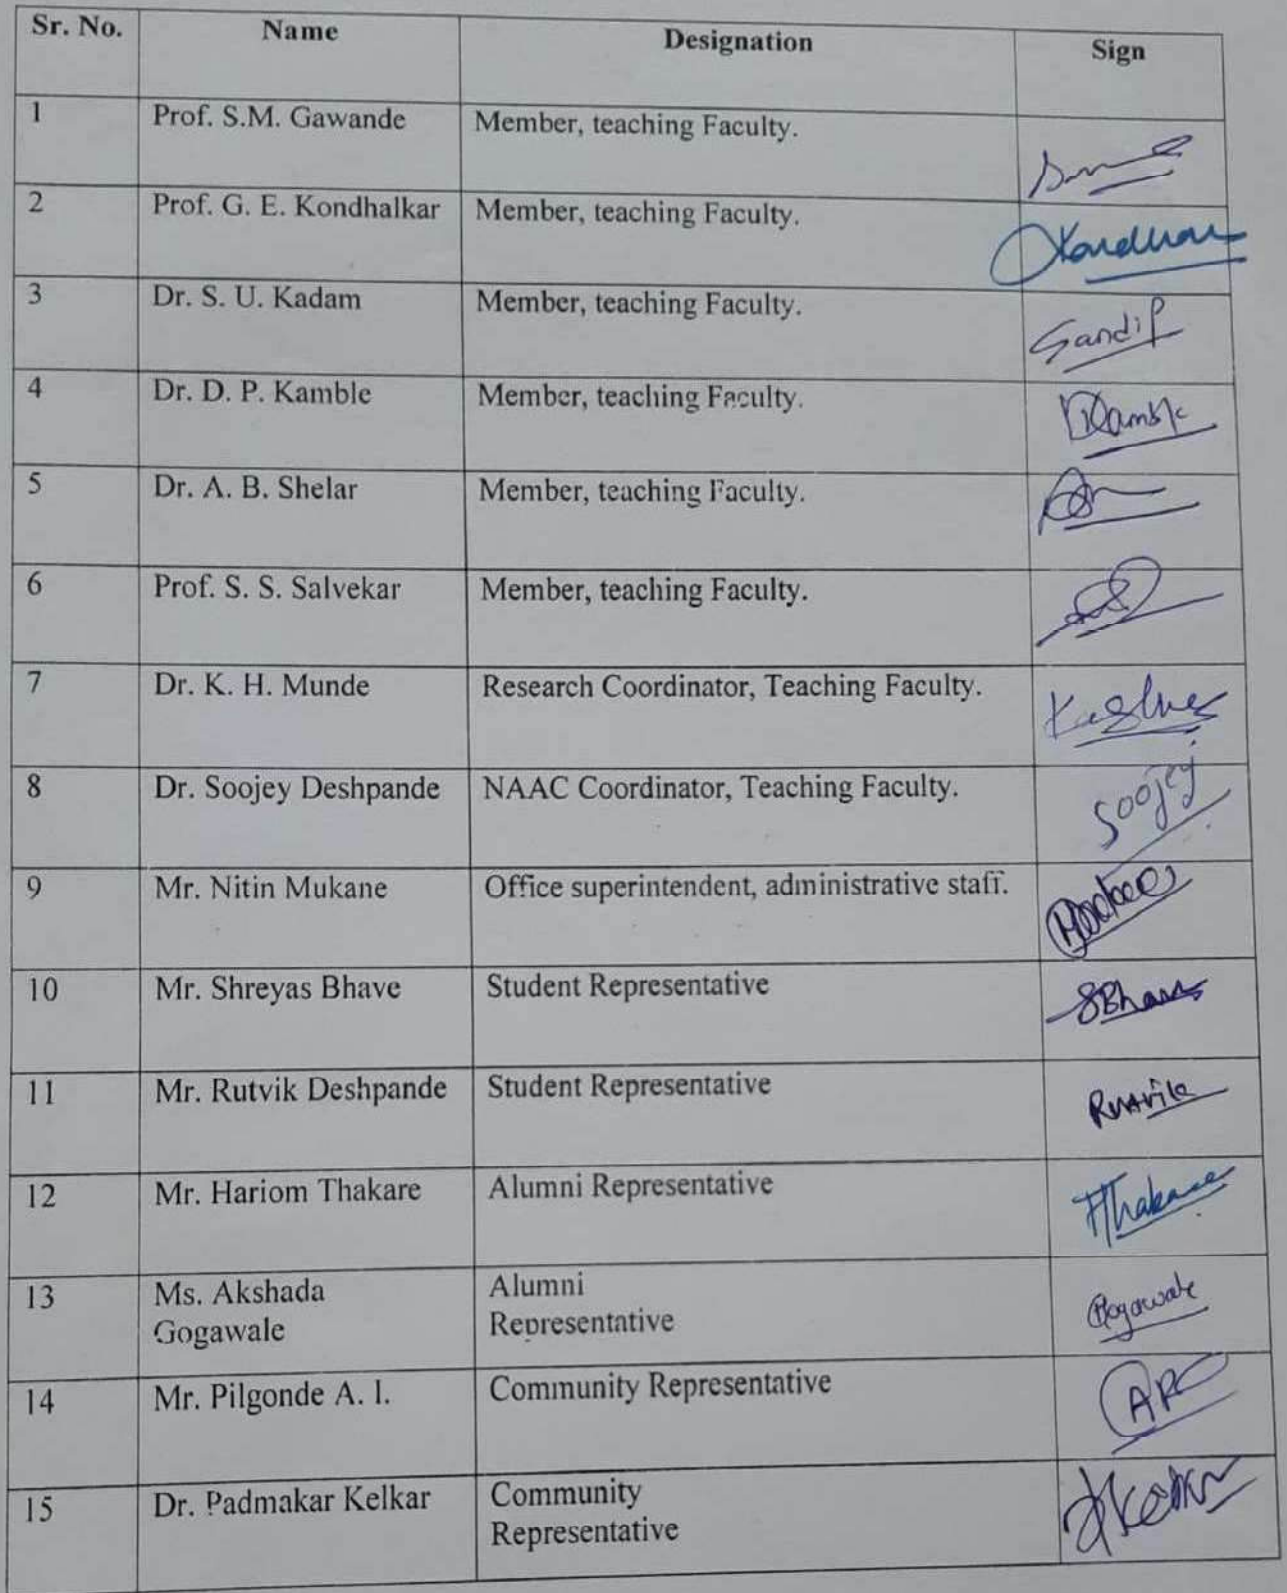 Sr. No. Name Designation Sign
1 Prof. S.M. Gawande Member, teaching Faculty.
2 Prof. G. E. Kondhalkar Member, teaching Faculty.
3 Dr. S. U. Kadam Member, teaching Faculty. Sandip
4 Dr. D. P. Kamble Member, teaching Faculty.
5 Dr. A. B. Shelar Member, teaching Faculty.
6 Prof. S. S. Salvekar Member, teaching Faculty.
7 Dr. K. H. Munde Research Coordinator, Teaching Faculty.
8 Dr. Soojey Deshpande NAAC Coordinator, Teaching Faculty. Soojey
9 Mr. Nitin Mukane Office superintendent, administrative staff.
10 Mr. Shreyas Bhave Student Representative
11 Mr. Rutvik Deshpande Student Representative
12 Mr. Hariom Thakare Alumni Representative HThakare
13 Ms. Akshada Alumni
Gogawale Representative
14 Mr. Pilgonde A. I. Community Representative
15 Dr. Padmakar Kelkar Community
Representative